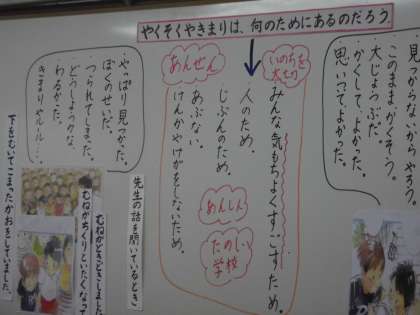 やくそくやきまりは、何のためにあるのだろう。
見つからないうちやろう。
・このままかくそう。
・大じょうぶだ。
・かくして、よかった。
・思いって、よかった。
いのちを
大切
みんな気もちよくすごすため。
人のため。
じぶんのため。
あぶない。
けんかやけがをしないため。
あんぜん
あんしん
たのしい
学校
・やっぱり見つかった。
・ぼくのせいだ。
・つられてしまった。
・どうしようかな。
・わるかった。
・きまりやルール…
先生の話を聞いているとき
むねがどきどきしました
むねがちくりといたくなって
下をむいてこまったかおをしていました。